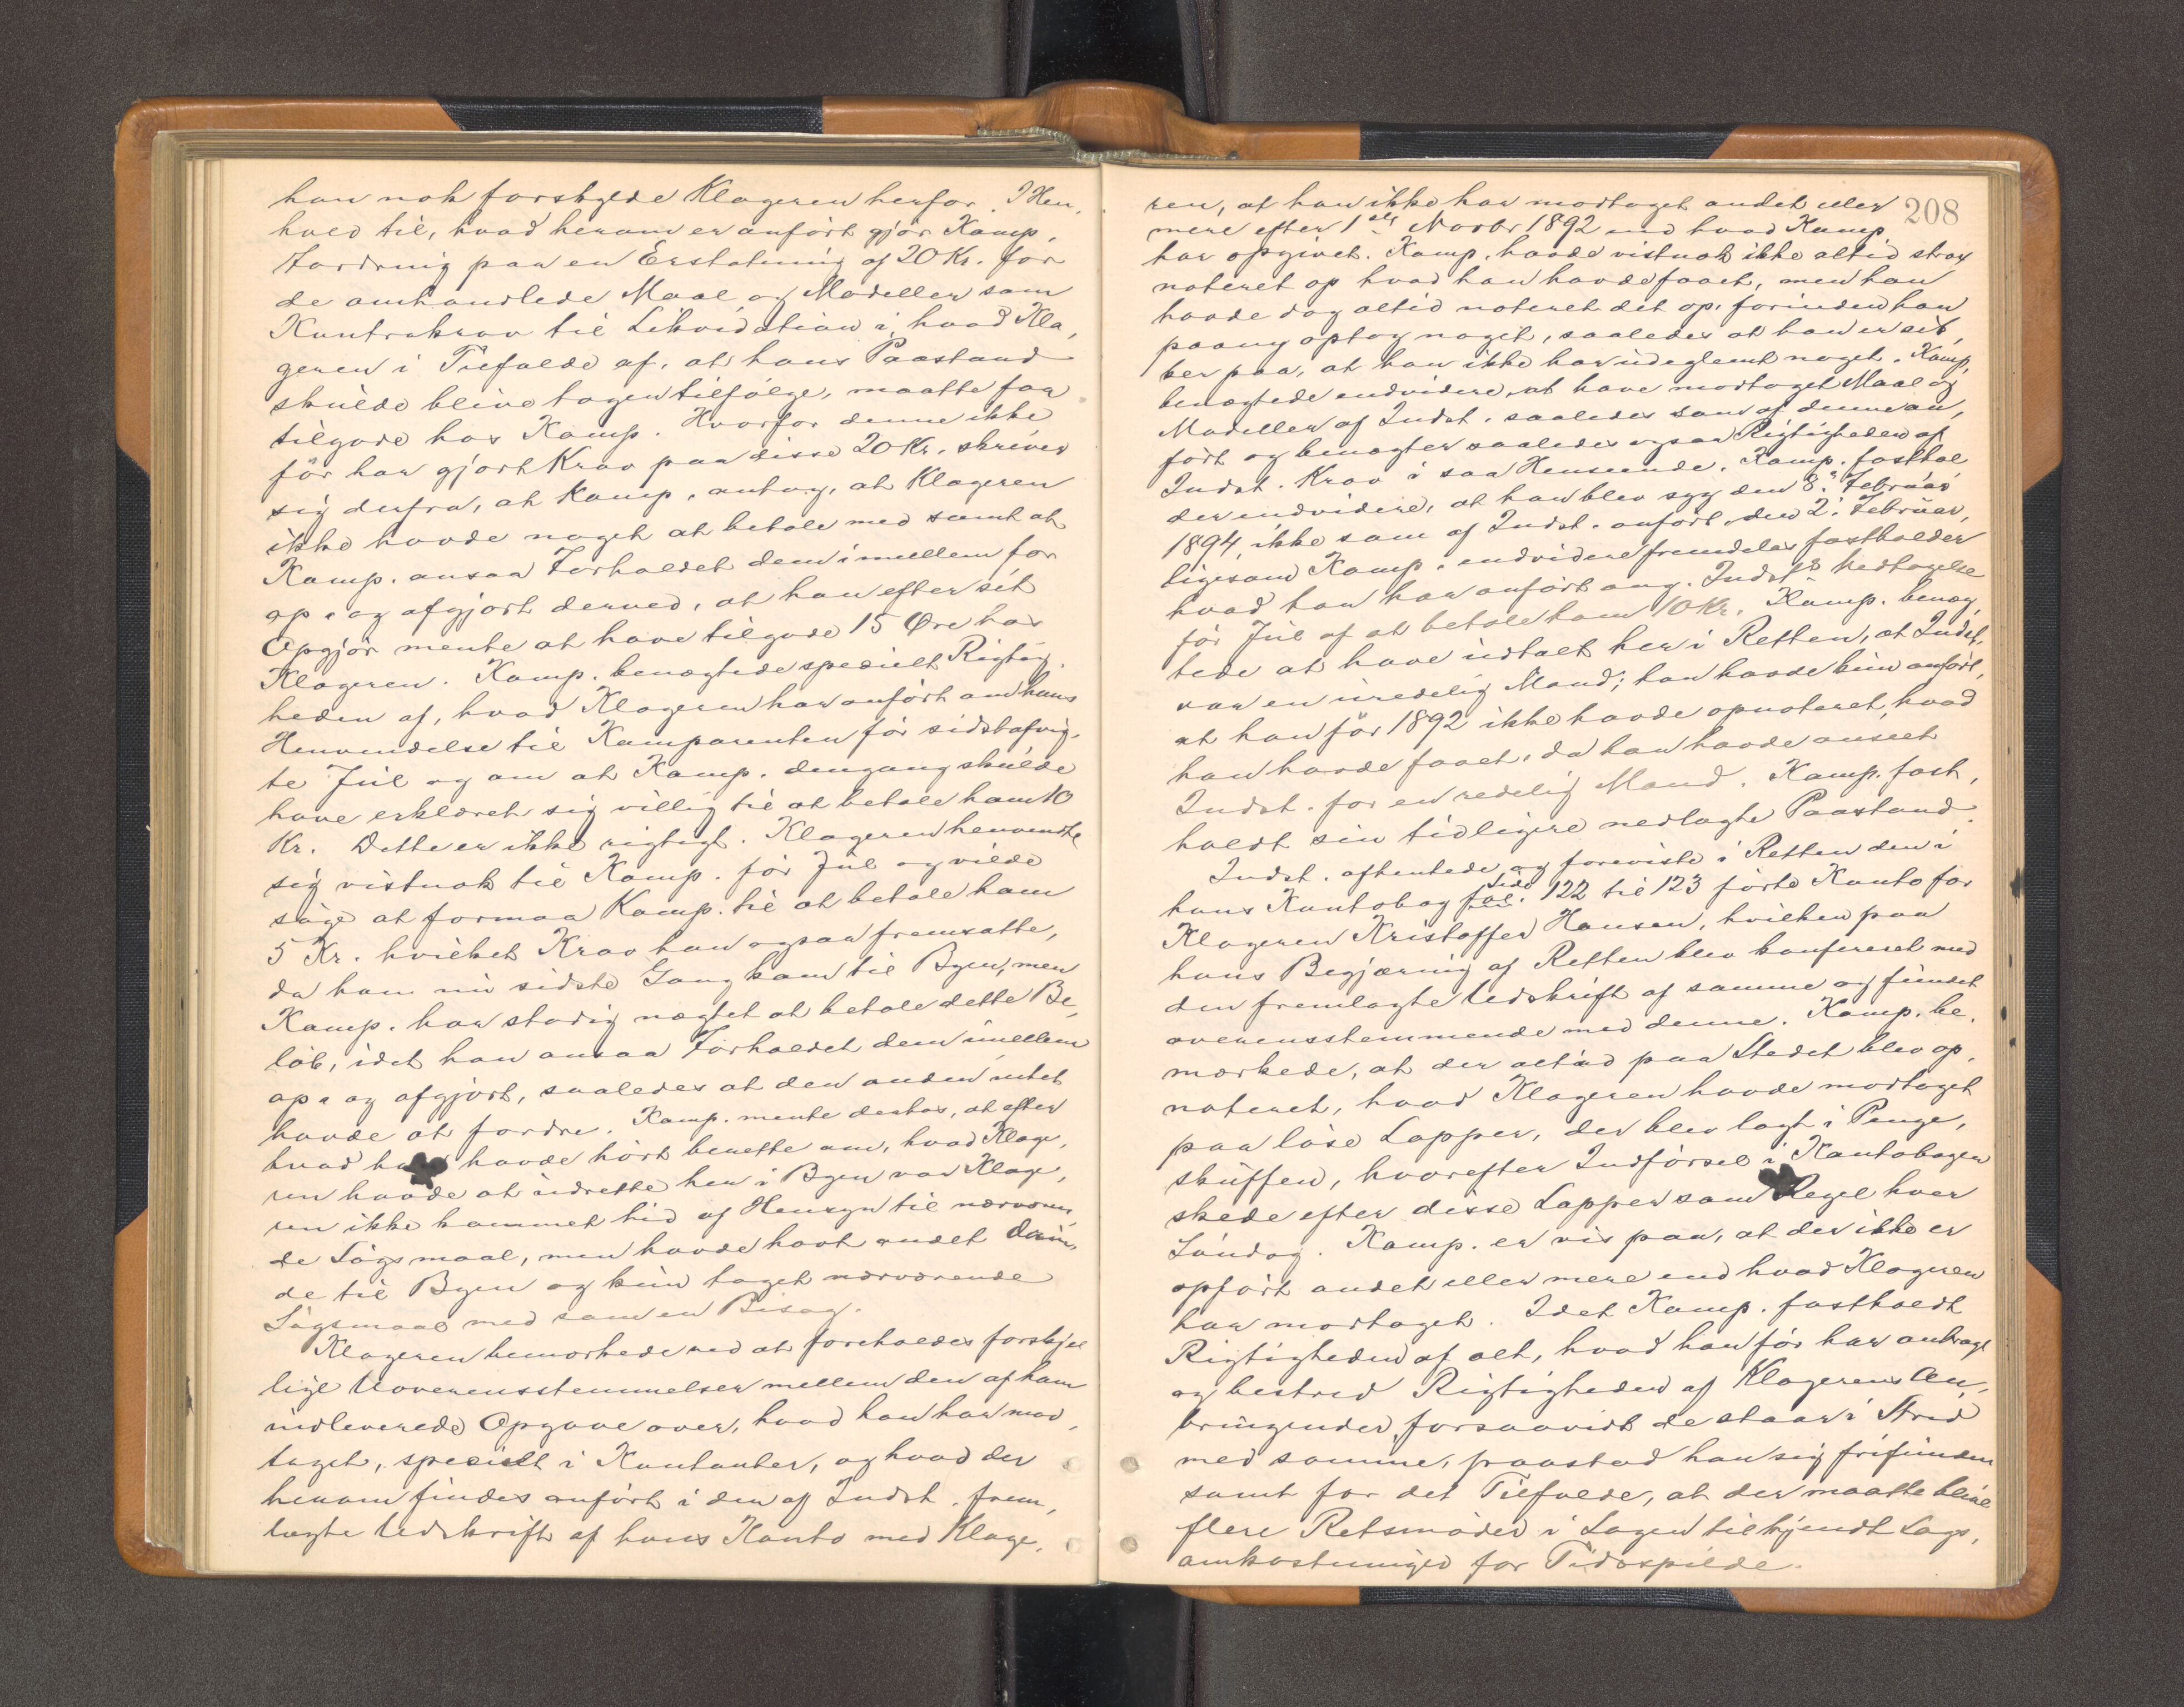 han nok forskylde Klageren herfor. I Hen,
hold til, hvad herom er anført gjør Komp.
Fordring paa en Erstatning af 20 Kr. for
de omhandlede Maal og Modeller som
Kontrakrav til Likvidation i, hvad Kla,
geren i Tilfælde af, at hans Paastand
skulde blive tagen tilfølge, maatte faa
tilgode hos Komp. Hvorfor denne ikke
før har gjort Krav paa disse 20 Kr. skriver
sig derfra, at Komp. antog, at Klageren
ikke havde noget at betale med samt at
Komp. ansaa Forholdet dem imellem for
op- og afgjort derved, at han efter sit
Opgjør mente at have tilgode 15 Øre hos
Klageren. Komp. benægtede specielt Rigtig,
heden af, hvad Klageren har anført om hans
Henvendelse til Komparenten før sidstafvig,
te Jul og om at Komp. dengang skulde
have erklæret sig villig til at betale ham 10
Kr. Dette er ikke rigtigt. Klageren henvendte
sig vistnok til Komp. før Jul og vilde
søge at formaa Komp. til at betale ham
5 Kr. hvilket Krav han ogsaa fremsatte,
da han nu sidste Gang kom til Byen, men
Komp. har stadig nægtet at betale dette Be,
løb, idet han ansaa Forholdet dem imellem
op- og afgjort, saaledes at den anden intet
havde at fordre. Komp. mente derhos, at efter
hvad han havde hørt berette om, hvad Klage,
ren havde at udrette her i Byen var Klage,
ren ikke kommet hid af Hensyn til nærværen,
de Søgsmaal, men havde havt andet Ærin,
de til Byen og kun taget nærværende
Søgsmaal med som en Bisag.
Klageren bemærkede ved at foreholdes forskjel
lige Uoverensstemmelser mellem den af ham
indleverede Opgave over, hvad han har mod,
taget, specielt i Kontanter, og hvad der
herom findes anført i den af Indst. frem,
lagte Udskrift af hans Konto med Klage,
208
ren, at han ikke har modtaget andet eller
mere efter 1ste Novbr 1892 end hvad Komp.
har opgivet. Komp. havde vistnok ikke altid strax
noteret op hvad han havde faaet, men han
havde dog altid noteret det op, forinden han
paany optog noget, saaledes at han er sik,
ker paa, at han ikke har udeglemt noget. Komp.
benægtede endvidere, at have modtaget Maal og
Modeller af Indst. saaledes som af denne an,
ført og benægter saaledes ogsaa Rigtigheden af
Indst. Krav i saa Henseende. Komp. fasthol,
der endvidere, at han blev syg den 8. Februar
1894, ikke som af Indst. anført den 2. Februar,
ligesom Komp. endvidere fremdeles fastholder
hvad han har anført ang. Indsts Vedtagelse
før Jul af at betale ham 10 Kr. Komp. benæg,
tede at have udtalt her i Retten, at Indst.
var en uredelig Mand; han havde kun anført,
at han før 1892 ikke havde opnoteret, hvad
han havde faaet, da han havde anseet
Indst. for en redelig Mand. Komp. fast,
holdt sin tidligere nedlagte Paastand.
Indst. afhentede og foreviste i Retten den i
hans Kontobog fol. Side 122 til 123 førte Konto for
Klageren Kristoffer Hansen, hvilken paa
hans Begjæring af Retten blev konfereret med
den fremlagte Udskrift af samme og fundet
overensstemmende med denne. Komp. be,
mærkede, at der altid paa Stedet blev op,
noteret, hvad Klageren havde modtaget
paa løse Lapper, der blev lagt i Penge,
skuffen, hvorefter Indførsel i Kontobogen
skede efter disse Lapper som Regel hver
Søndag. Komp. er vis paa, at der ikke er
opført andet eller mere end hvad Klageren
har modtaget. Idet Komp. fastholdt
Rigtigheden af alt, hvad han før har anbragt
og bestred Rigtigheden af Klagerens An,
bringender, forsaavidt de staar i Strid
med samme, paastod han sig frifunden
samt for det Tilfælde, at der maatte blive
flere Retsmøder i Sagen tilkjendt Sags,
omkostninger for Tidsspilde.